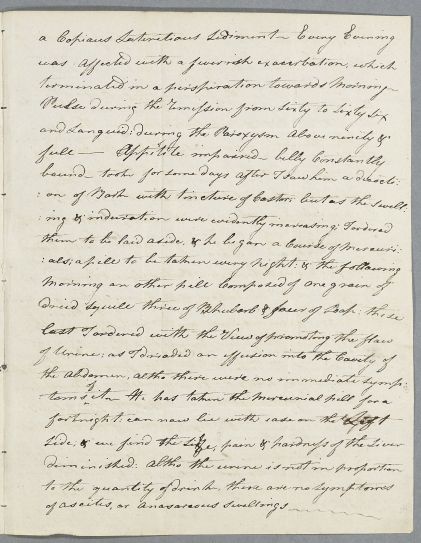 a Copious Lateritious Sediment – Every Evening
was affected with a feverish exacerbation, which
terminated in a perspiration towards Morning –
Pulse during the Remission from Sixty to Sixty Six
and Languid: during the Paroxysm above ninety &
full — Appetite impaired – belly Constantly
bound – took for some days after I saw him a decocti:
:on of Bark with tincture of Castor; but as the Swell:
:ing & induration were evidently increasing; I ordered
them to be laid aside, & he began a Course of Mercuri:
:als; a pill to be taken every night: & the following
Morning an other pill Composed of one grain of
dried Squill three of Rhubarb & four of Soap: these
last I ordered with the View of promoting the flow
of Urine; as I dreaded an effusion into the Cavity of
the Abdomen, altho there were no immediate Symp:
:toms of it – He has taken the Mercurial pill for a
fortnight: can now lie with ease on the Left
Side, & we find the Size, pain & hardness of the Liver
diminished: Altho the urine is not in proportion
to the quantity of drink, there are no Symptoms
of ascites, or anasarcous Swellings